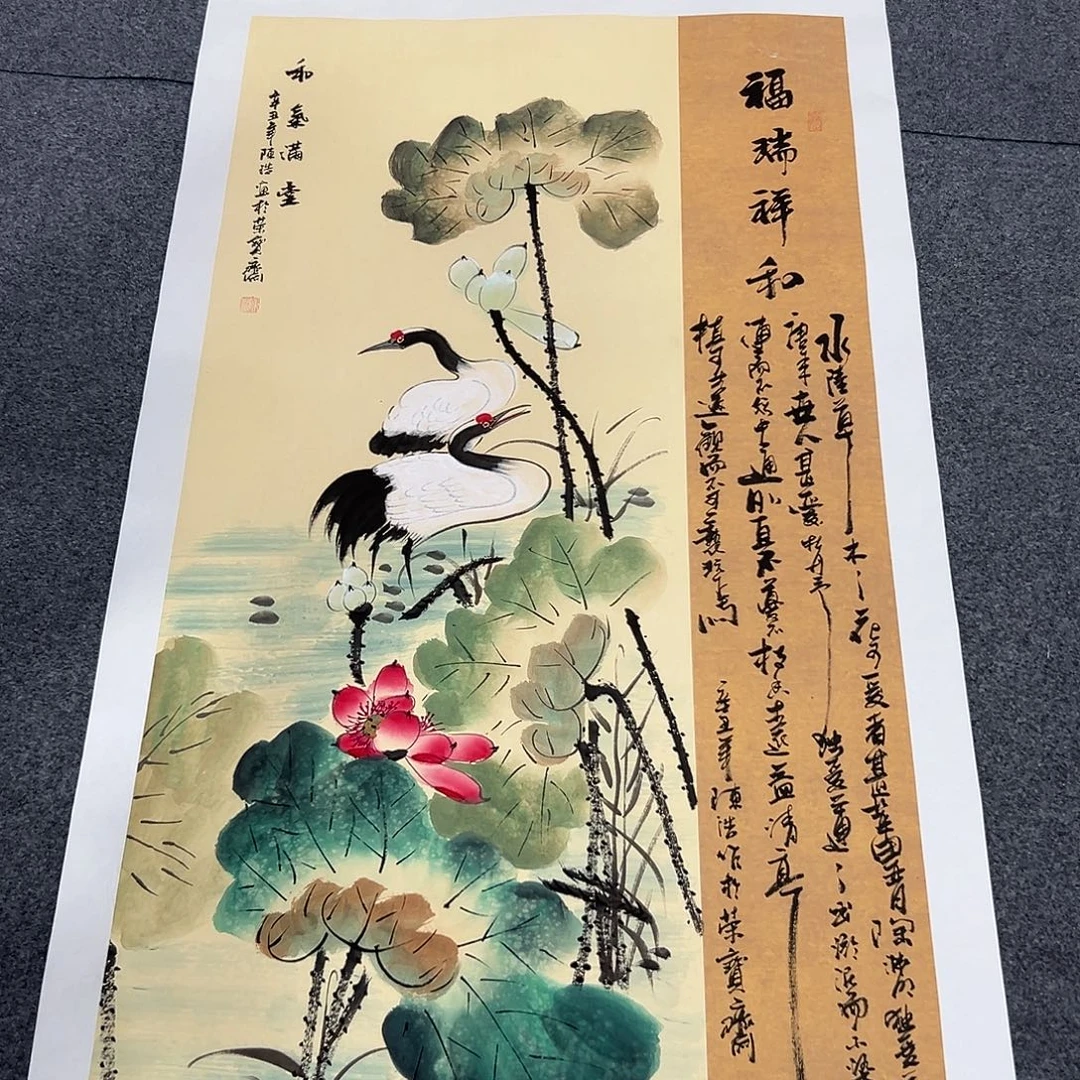 福瑞祥和
水陸草木之花可爱者甚蕃晋陶渊明独爱
唐来世人甚愛牡丹予独爱蓮之出淤泥而不染
漣而不妖中通外直不蔓不枝香遠益清亭
植可遠觀而不可褻玩焉
辛丑年陳浩作於荣寶齋
和氣满堂
辛丑年陳浩 於荣寶齋